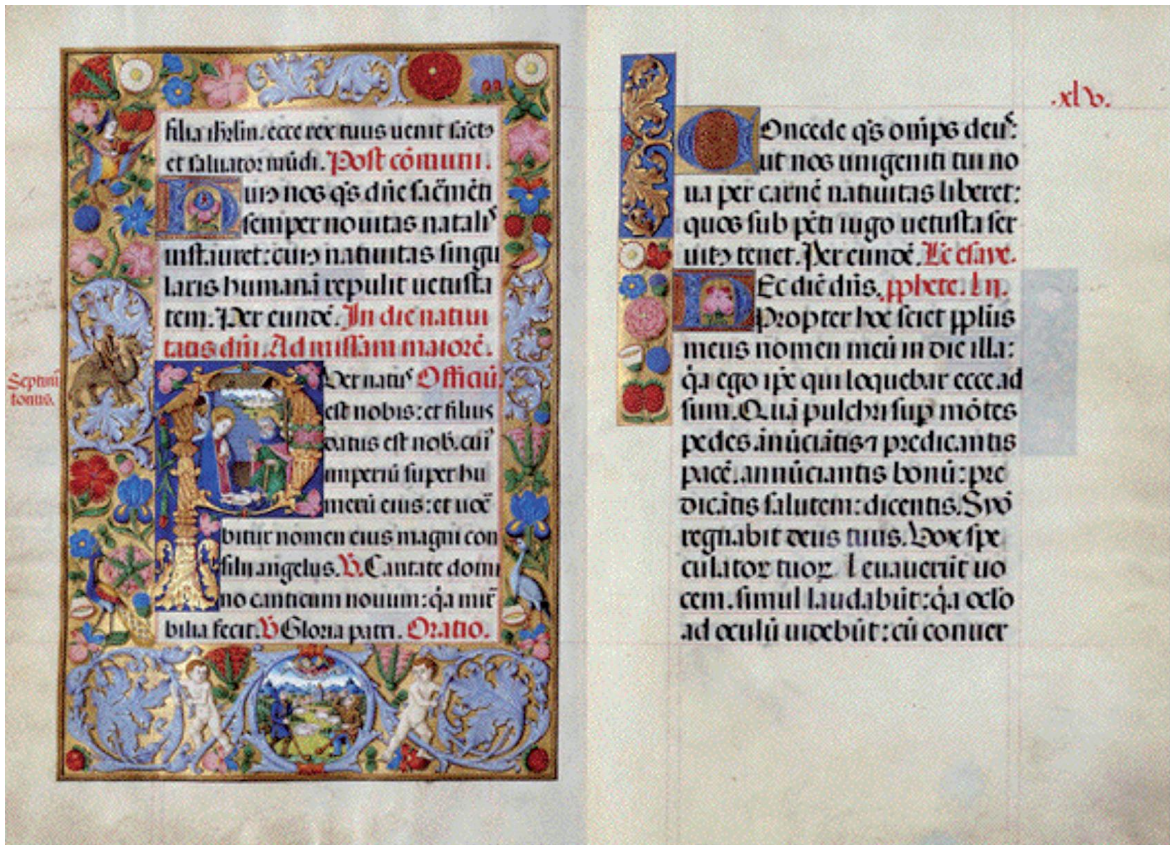 filia iherlm. ecce rex tuus uenit sāctꝰ
et saluator mūdi. Post cōmuni.
Huiꝰ nos q̄s dn̄e sac̄mēti
semper nouitas natalis
instauret: cuiꝰ natiuitas singu
laris humanā repulit uetusta
tem. Per eundē. In die natiui
tatis dn̄i. Ad missam maiorē.
Septimꝰ
tonus.
Puer natus Officiū.
est nobis: et filius
datus est nob. cuiꝰ
imperiū super hu
merū eius: et uoca
bitur nomen eius magni con
silij angelus. V. Cantate domi
no canticum nouum: q̄a mira
bilia fecit. V Gloria patri. Oratio.
.xlv.
Concede q̄s om̄ps deus:
ut nos unigeniti tui no
ua per carnē natiuitas liberet:
quos sub pc̄ti iugo uetusta ser
uitꝰ tenet. Per eundē. Lc̄ esaye.
Hec dic̄ dn̄s. ꝓphete. In.
Propter hoc sciet ppl̄us
meus nomen meū in die illa:
q̄a ego ip̄e qui loquebar ecce ad
sum. Quā pulchri sup mōtes
pedes. ānūciātis ⁊ predicantis
pacē. annūciantis bonū: pre
dicātis salutem: dicentis. Syō
regnabit deus tuus. Vox spe
culatoꝝ tuoꝝ leuauerūt uo
cem. simul laudabūt: q̄a oclo
ad oculū uidebūt: cū conuer